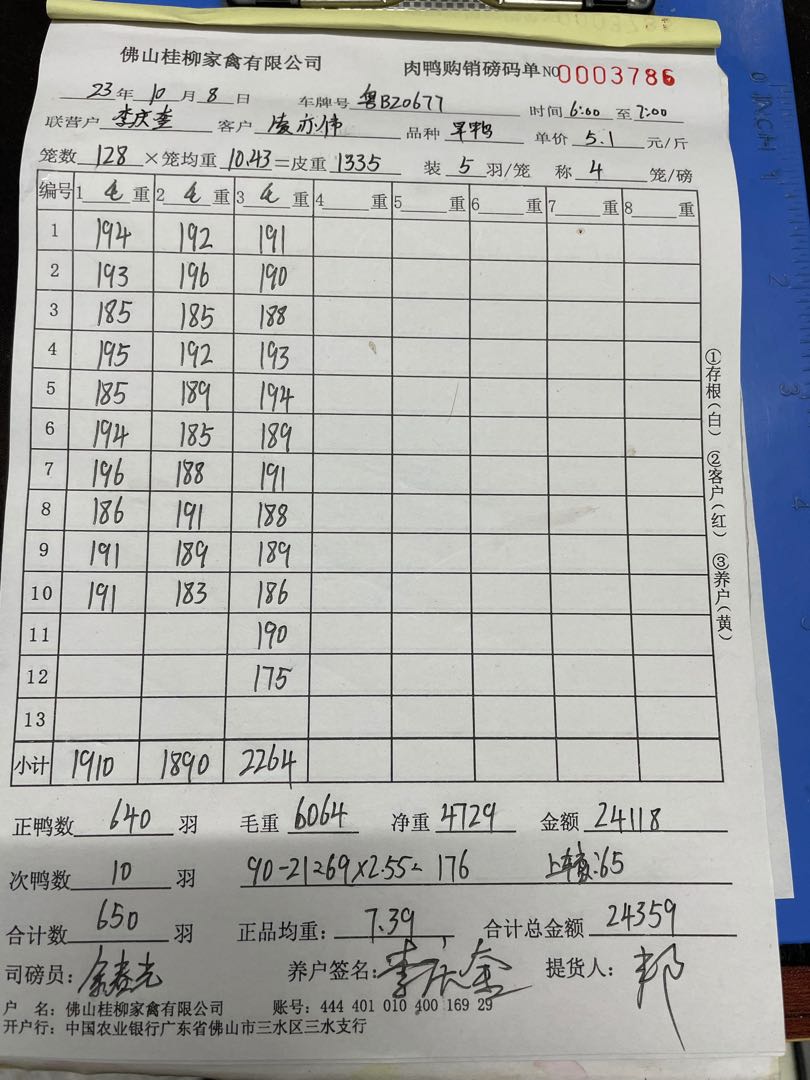 佛山桂柳家禽有限公司 肉鸭购销磅码单 NO 0003786
23年10月8日 车牌号 粤BZ0677 时间 6:00 至 7:00
联营户 李庆奎 客户 凌亦伟 品种 旱鸭 单价 5.1 元/斤
笼数 128 ×笼均重 10.43 =皮重 1335 装 5 羽/笼 称 4 笼/磅
编号 1 毛 重 2 毛 重 3 毛 重 4 重 5 重 6 重 7 重 8 重
1 194 192 191
2 193 196 190
3 185 185 188
4 195 192 193
5 185 189 194
6 194 185 189
7 196 188 191
8 186 191 188
9 191 189 189
10 191 183 186
11 190
12 175
13
小计 1910 1890 2264
正鸭数 640 羽 毛重 6064 净重 4729 金额 24118
次鸭数 10 羽 90-21=69×2.55= 176 上车费:65
合计数 650 羽 正品均重: 7.39 合计总金额 24359
司磅员: 养户签名: 李庆奎 提货人: 邦
户 名: 佛山桂柳家禽有限公司 账号: 444 401 010 400 169 29
开户行: 中国农业银行广东省佛山市三水区三水支行
①存根(白) ②客户(红) ③养户(黄)